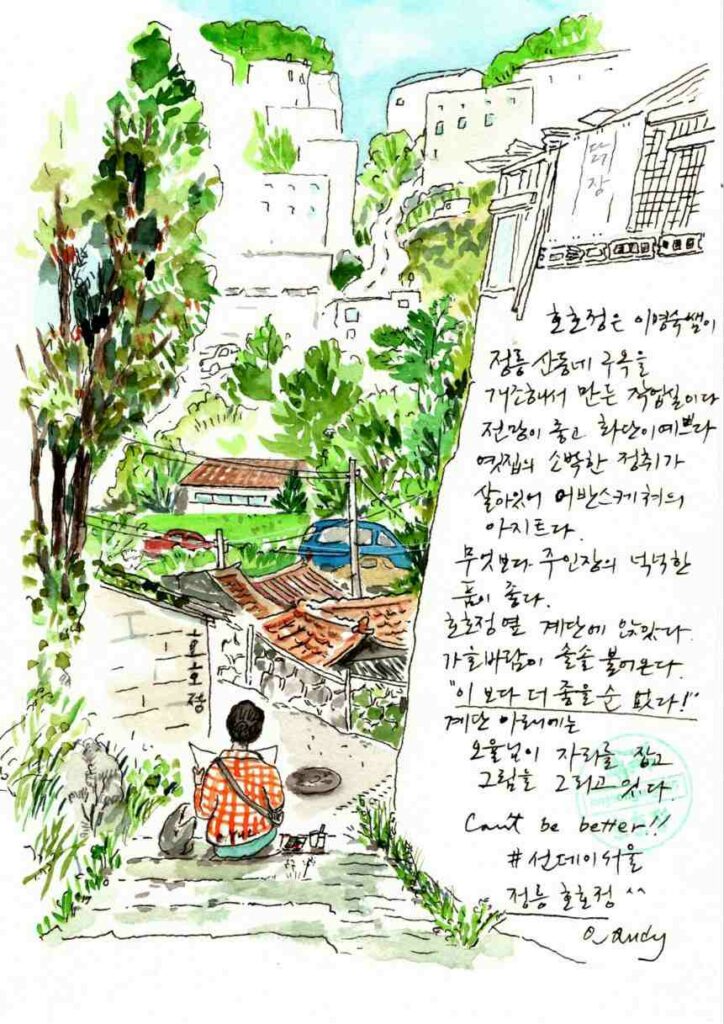 호호정은 이영숙쌤이
정릉 산동네 구옥을
개조해서 만든 작업실이다
전망이 좋고 화단이 예쁘다
옛집의 소박한 정취가
살아있어 어반스케쳐의
아지트다.
무엇보다 주인장의 넉넉한
품이 좋다.
호호정 옆 계단에 앉았다.
가을바람이 솔솔 불어온다.
"이 보다 더 좋을 순 없다!"
계단 아래에는
오율님이 자리를 잡고
그림을 그리고 있다.
Can't be better!!
#선데이서울
정릉 호호정 ^^
Andy
호호정